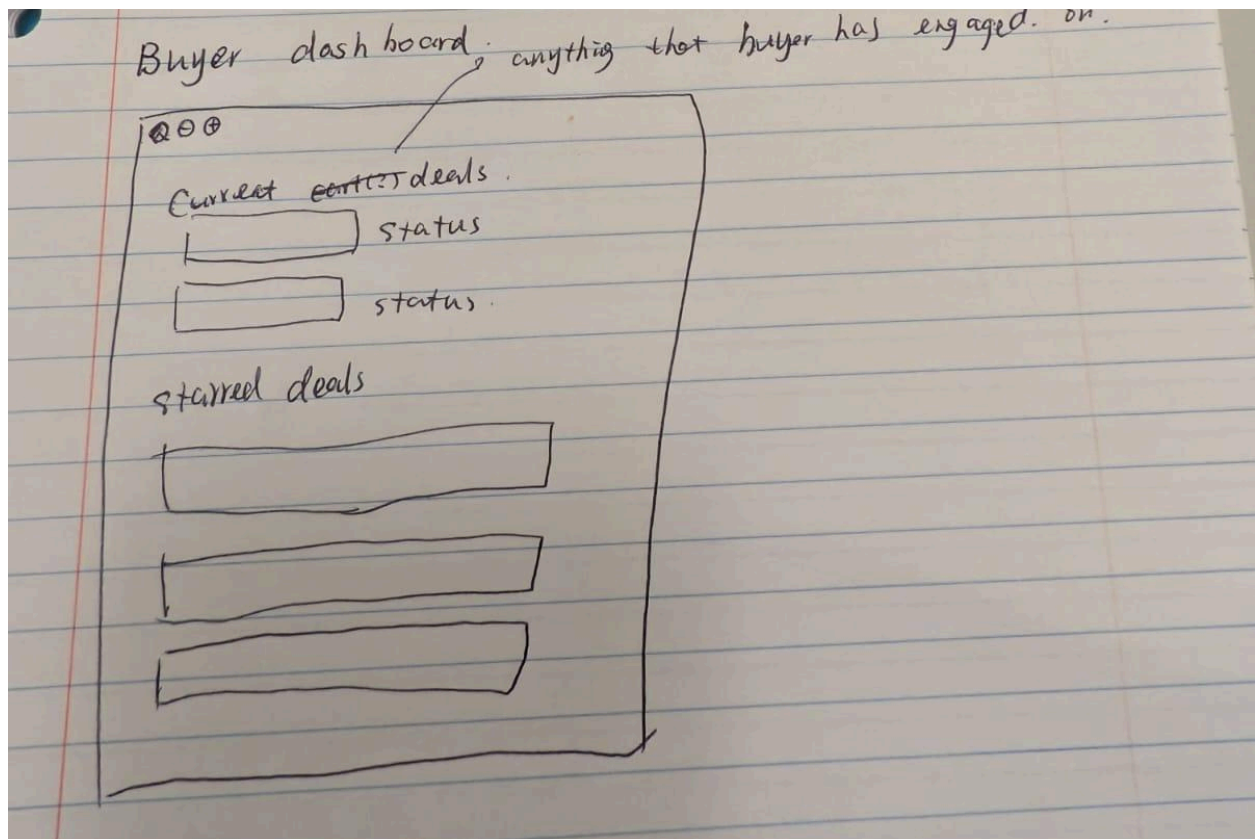 Buyer dashboard.
anything that buyer has engaged. on.
Current deals.
status
status.
starred deals